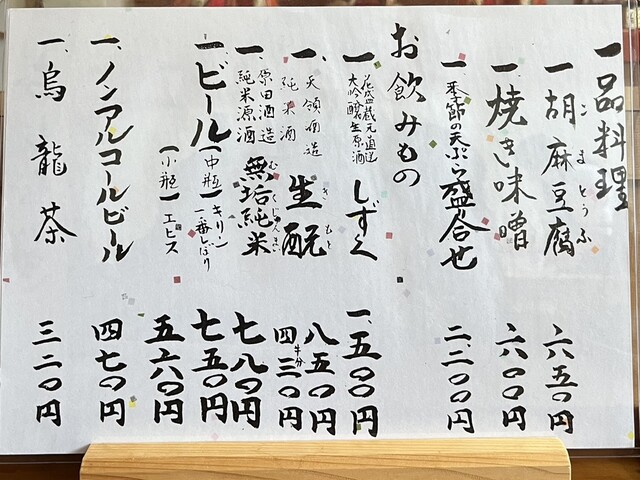 一品料理
一 胡麻豆腐 六五〇円
ごまとうふ
一 焼き味噌 六〇〇円
一 季節の天ぷら盛合せ 二、二〇〇円
お飲みもの
一 花盛蔵元直送
大吟醸生原酒 しずく 一、五〇〇円
一、天領酒造
純米酒 生酛 八五〇円
きもと
半分 四三〇円
一、原田酒造
純米源酒 無垢純米 七八〇円
むくじゅんまい
一、ビール (中瓶) キリン一番しぼり 七五〇円
(小瓶) エビス 五六〇円
一、ノンアルコールビール 四七〇円
一、烏龍茶 三二〇円